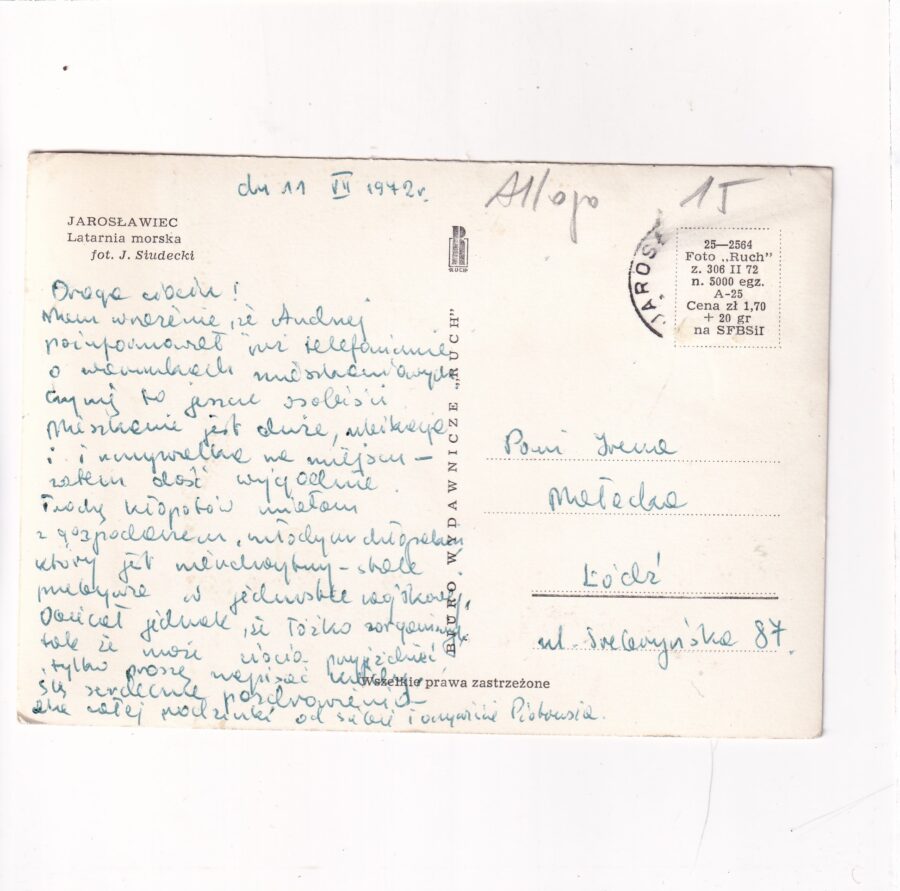 dn 11 VII 1972r.
Allojo 15
JAROSŁAWIEC
Latarnia morska
fot. J. Siudecki
RUCH
JAROS
25—2564
Foto „Ruch”
z. 306 II 72
n. 5000 egz.
A-25
Cena zł 1,70
+ 20 gr
na SFBSiI
Droga ciociu!
Mam wrażenie, że Andrzej
poinformował już telefonicznie
o warunkach mieszkaniowych
czynię to jeszcze osobiście
Mieszkanie jest duże, ubikacja
i umywalka na miejscu –
zatem dość wygodnie.
Trochę kłopotów miałam
z gospodarzem, młodym chłopakiem
który jest nieuchwytny – stale
przebywa w jednostce wojskowej.
Obiecał jednak, że łóżko zorganizuje
tak że może ciocia przyjeżdżać
tylko proszę napisać kiedy.
serdecznie pozdrowienia
dla całej rodzinki od siebie i oczywiście
BIURO WYDAWNICZE „RUCH”
Wszelkie prawa zastrzeżone
Pani Irena
Małecka
Łódź
ul. 87.